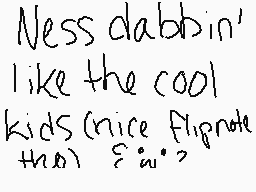 Ness dabbin'
like the cool
kids (nice flipnote
tho)